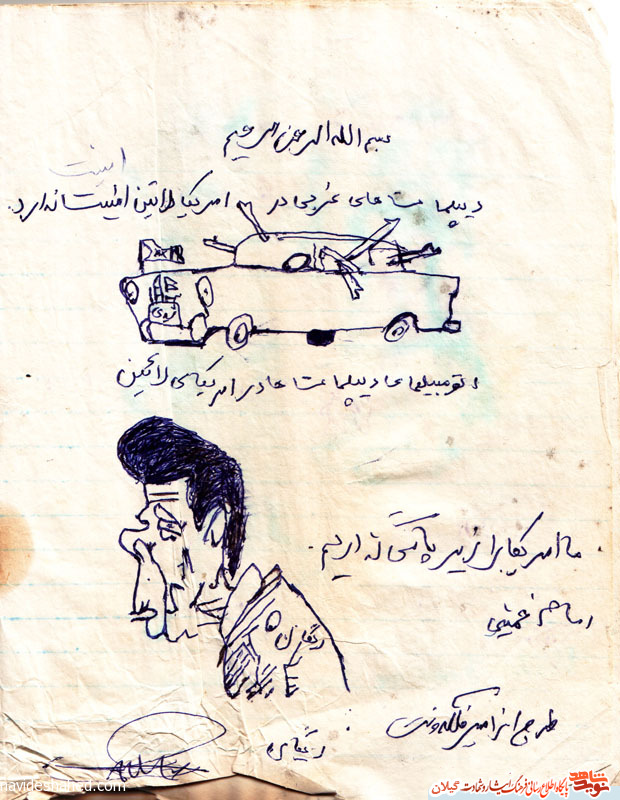 بسم الله الرحمن الرحیم
امنیت
دیپلمات های غربی در امریکا لاتین امنیت ندارد.
اتومبیلها دیپلمات ها در امریکای لاتین
ما امریکا را زیر پا می گذاریم.
امام خمینی
ریگان
طرح از امیر فلکه وند
navideshahed.com
نوید شاهد
پایگاه اطلاع رسانی فرهنگ ایثار و شهادت گیلان